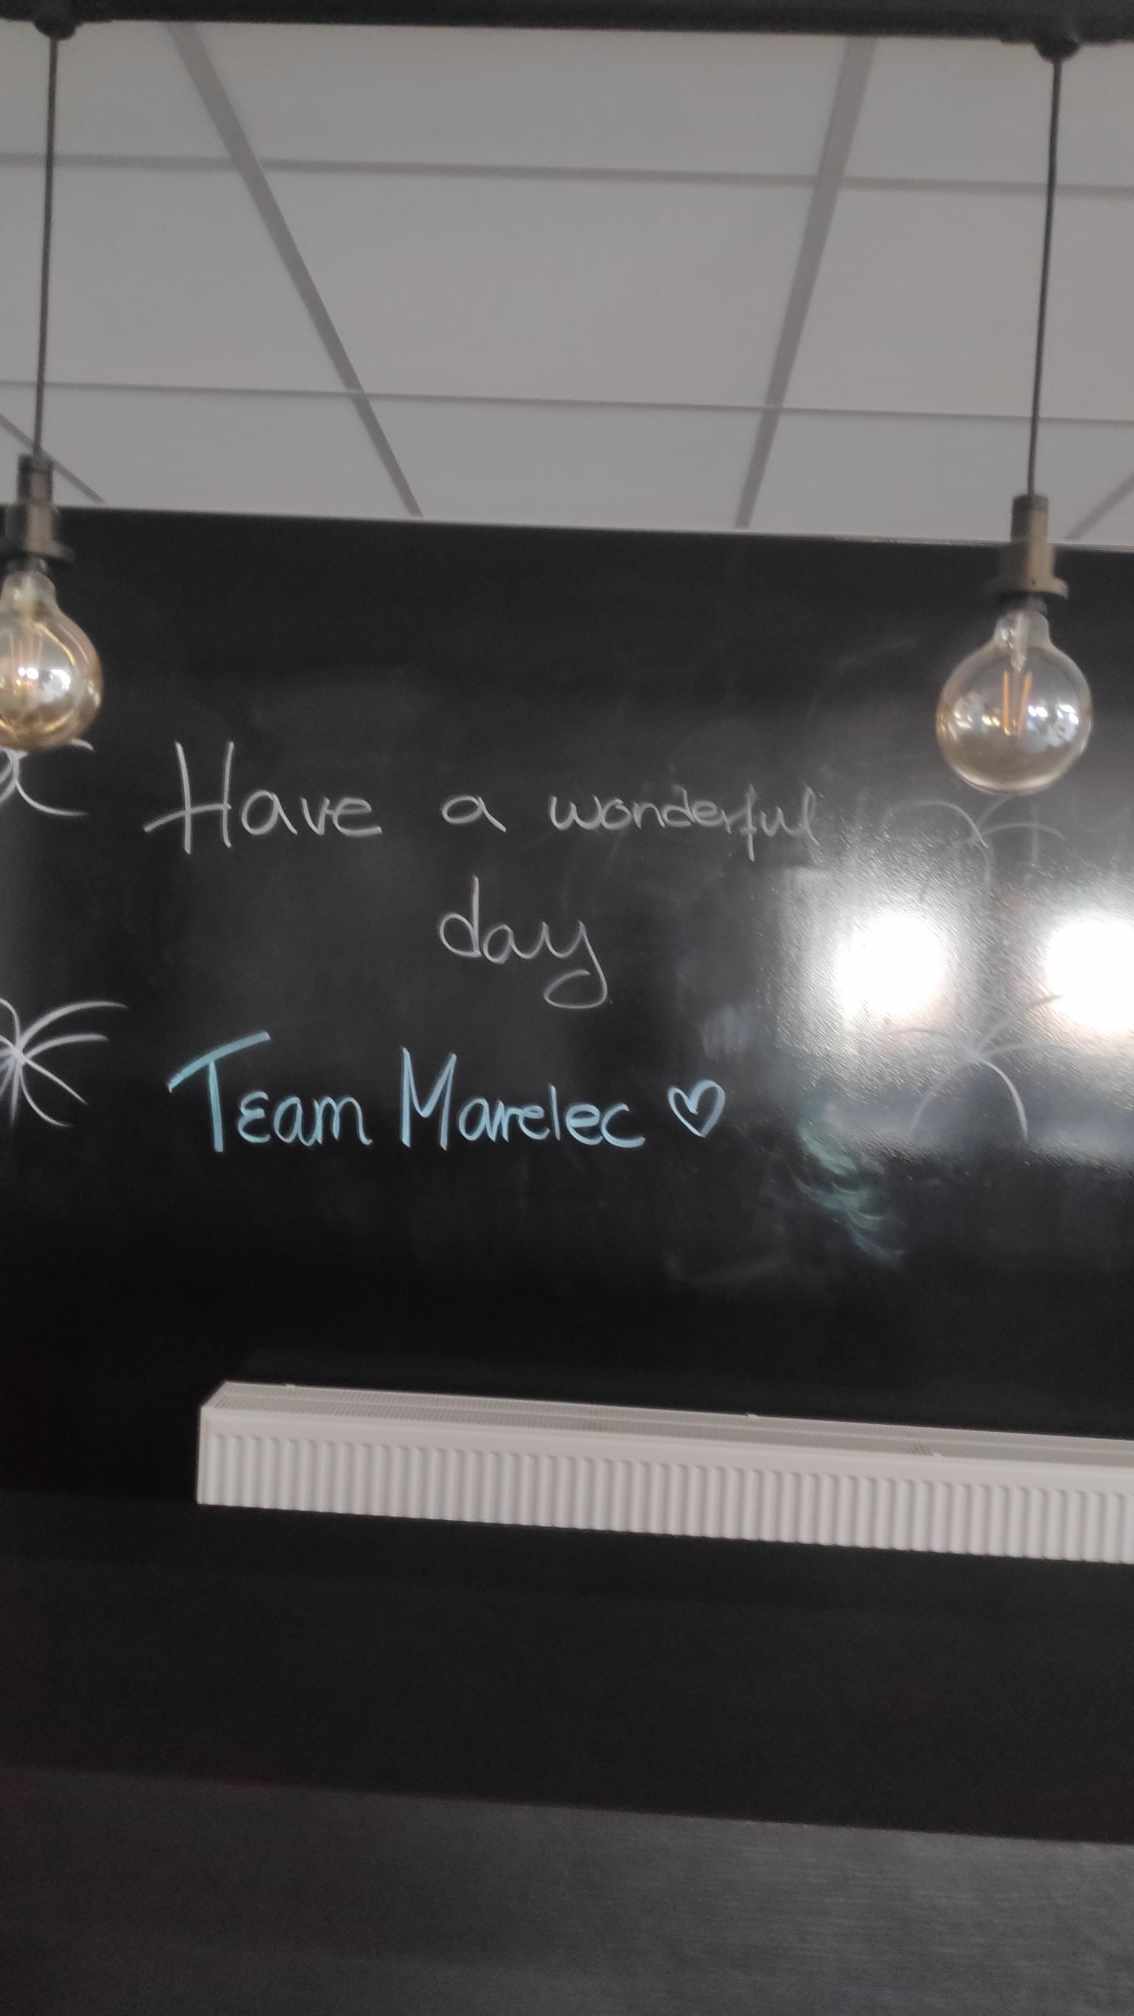 Have a wonderful
day
Team Marelec ♡